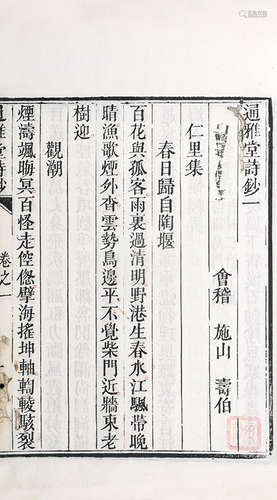 通雅堂詩鈔一
會稽 施山 壽伯
仁里集
春日歸自陶堰
百花與孤客雨裏過清明野港生春水江飊帶晚
晴漁歌煙外杳雲勢鳥邊平不覺柴門近牆東老
樹迎
觀潮
煙濤颯晦冥百怪走倥傯擘海搖坤軸輷輘駭裂
通雅堂詩鈔
卷之一